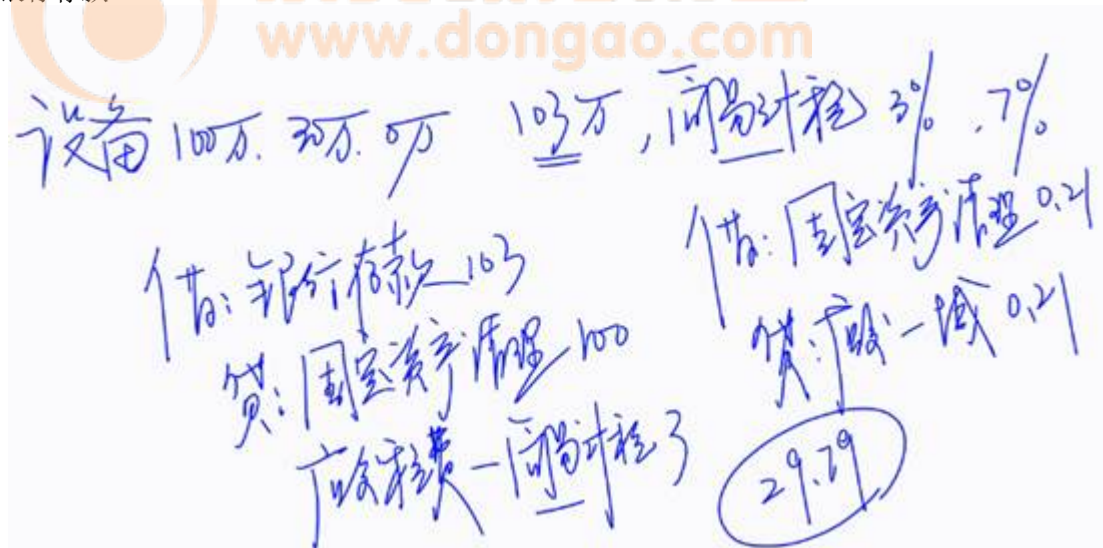 www.dongao.com
设备 100万. 30万. 0万 103万, 简易计税 3%. 7%
借: 银行存款 103
贷: 固定资产清理 100
应交税费-简易计税 3
借: 固定资产清理 0.21
贷: 应交-城 0.21
29.79